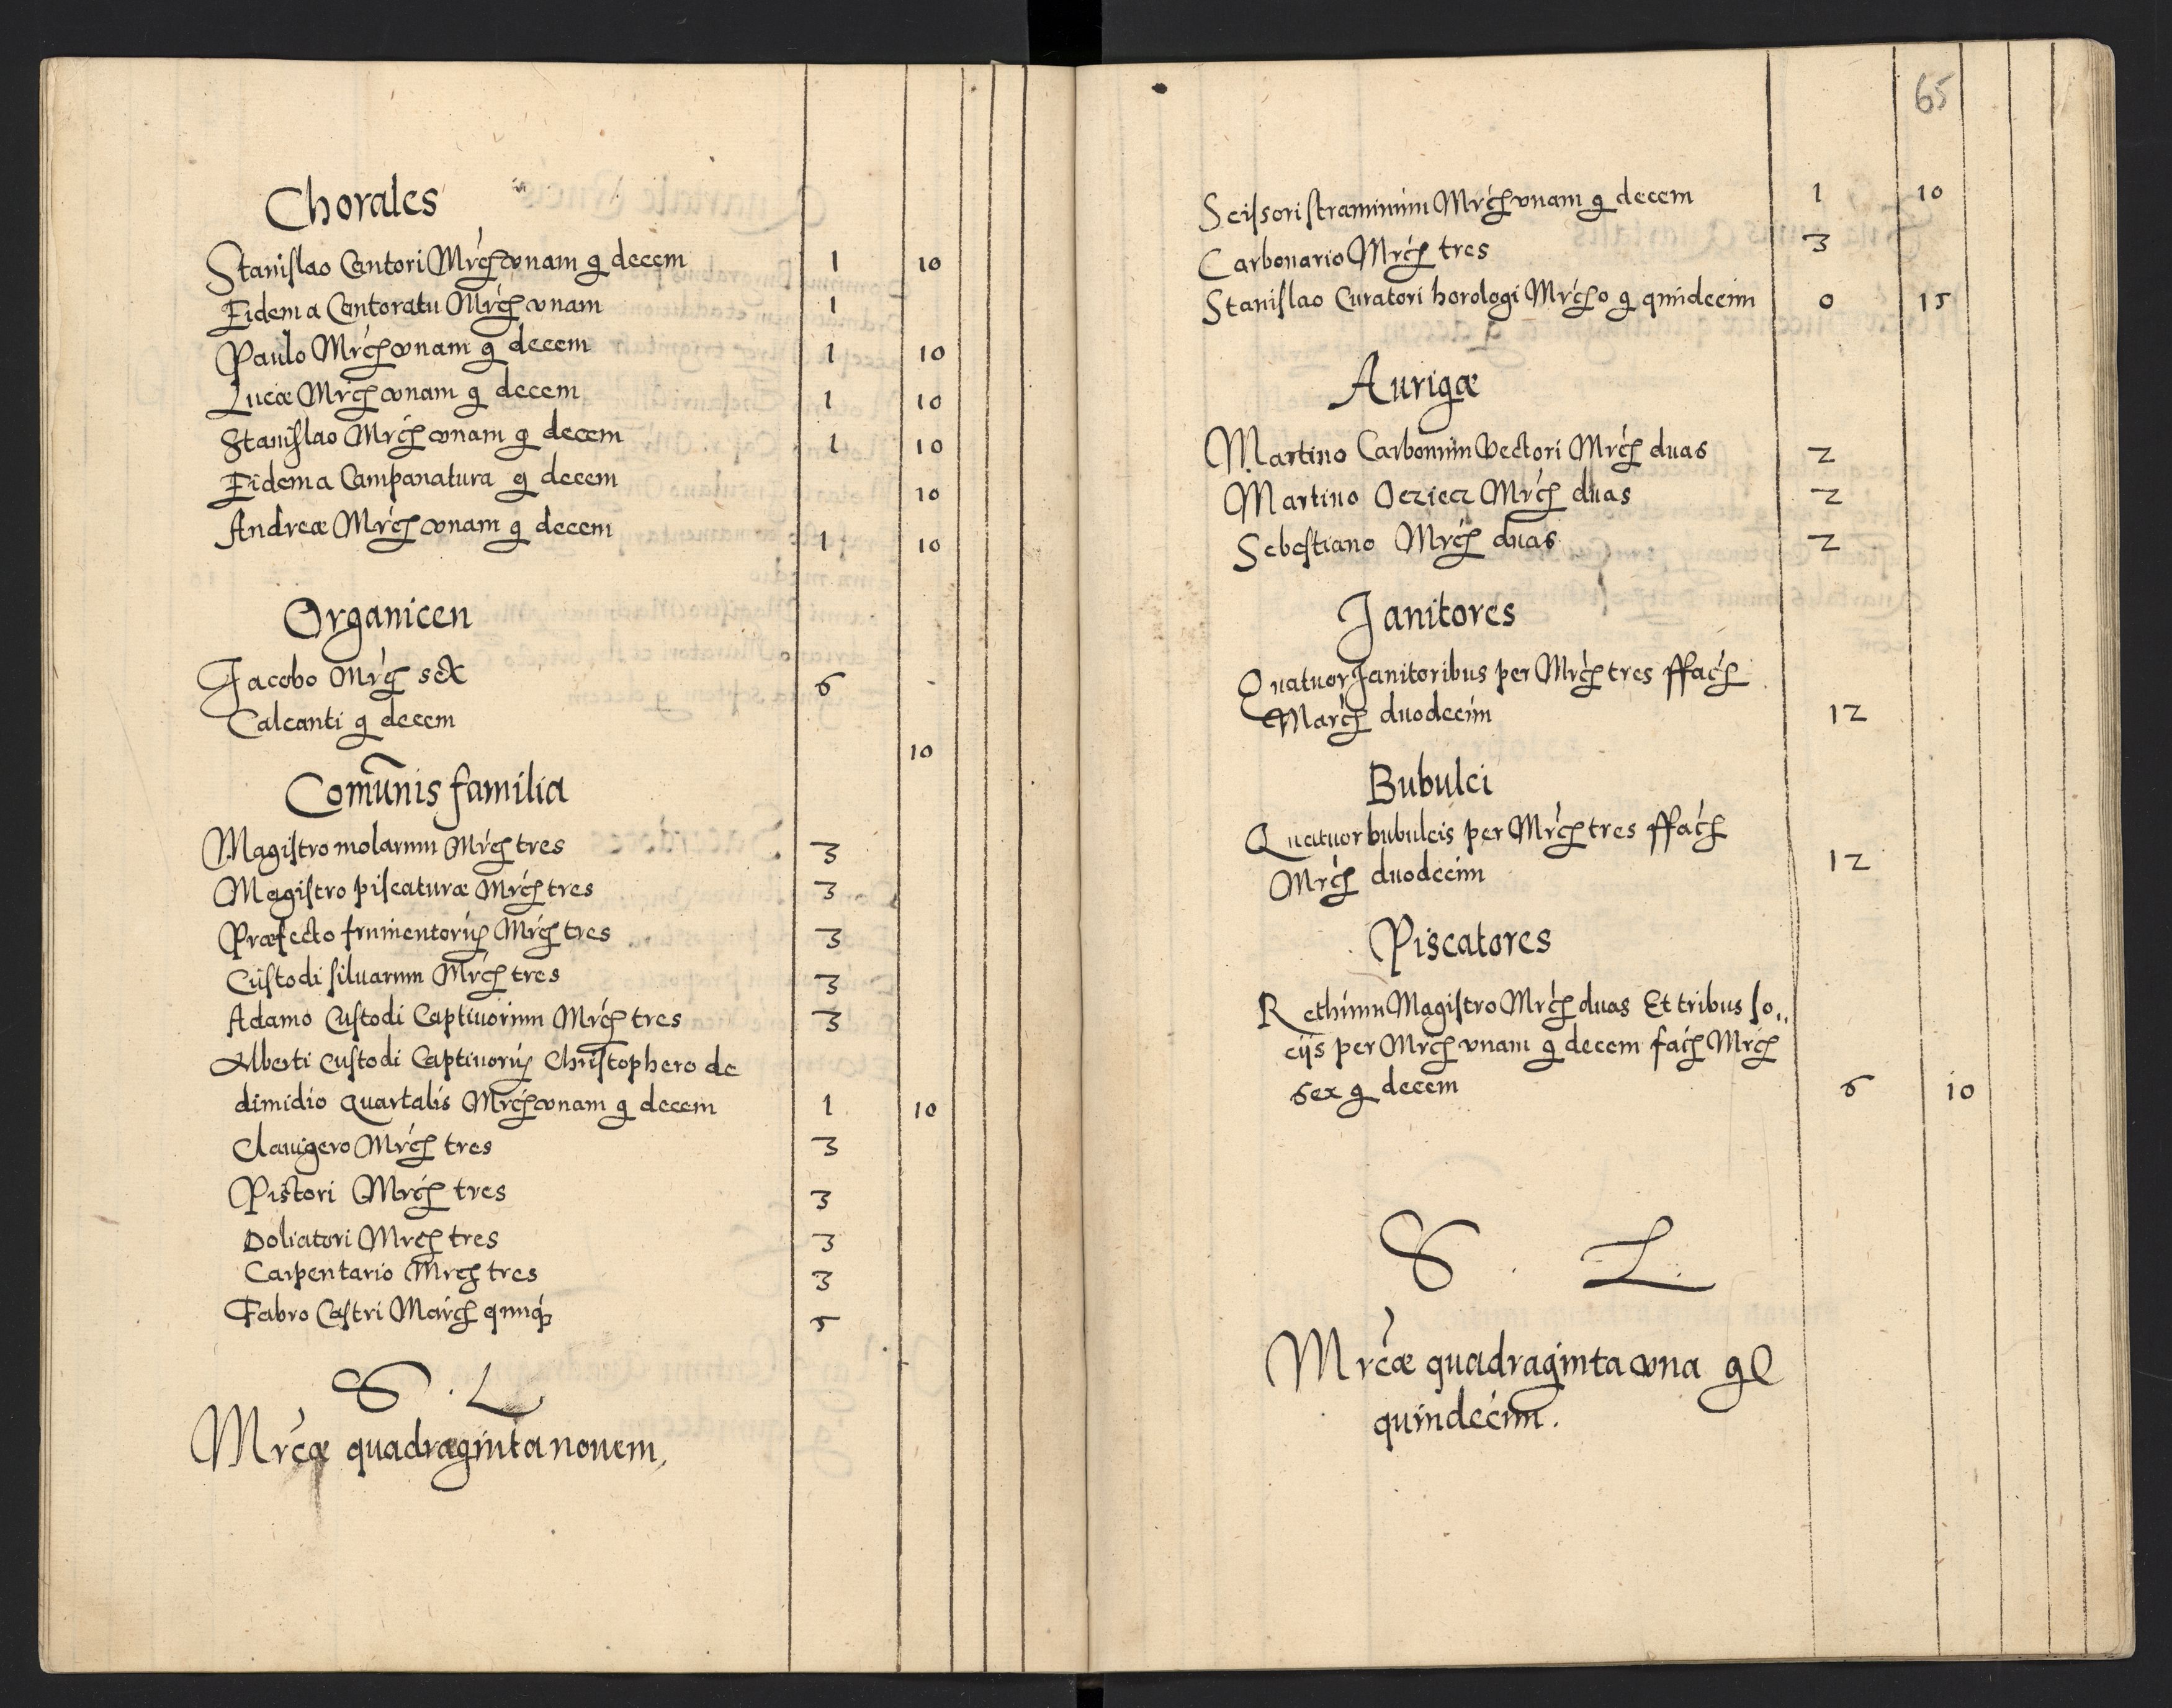 Chorales
Stanislao Cantori Mrcħ vnam g decem 1 10
Eidem a Cantoratu Mrcħ vnam 1
Paulo Mrcħ vnam g decem 1 10
Lucæ Mrcħ vnam g decem 1 10
Stanislao Mrcħ vnam g decem 1 10
Eidem a Campanatura g decem 10
Andreæ Mrcħ vnam g decem 1 10
Organicen
Jacobo Mrcħ sex 6
Calcanti g decem 10
Comūnis familia
Magistro molarum Mrcħ tres 3
Magistro piscaturæ Mrcħ tres 3
Præfecto frumentorūꝫ Mrcħ tres 3
Custodi siluarum Mrcħ tres 3
Adamo Custodi Captiuorum Mrcħ tres 3
Alberti custodi Captiuorūꝫ Christophero de
dimidio quartalis Mrcħ vnam g decem 1 10
Clauigero Mrcħ tres 3
Pistori Mrcħ tres 3
Doliatori Mrcħ tres 3
Carpentario Mrcħ tres 3
Fabro Castri Marcħ quinqꝫ 5
S . L
Mrcæ quadraginta nouem,
65
Scissori straminum Mrcħ vnam g decem 1 10
Carbonario Mrcħ tres 3
Stanislao Curatori horologi Mrcħ o g quindecim 0 15
Aurigæ
Martino Carbonum Vectori Mrcħ duas 2
Martino Ocziecz Mrcħ duas 2
Sebestiano Mrcħ duas 2
Janitores
Quatuor Janitoribus per Mrcħ tres ffacħ
Marcħ duodecim 12
Bubulci
Quatuor bubulcis per Mrcħ tres ffacħ
Mrcħ duodecim 12
Piscatores
Rethium Magistro Mrcħ duas Et tribus so,,
cijs per Mrcħ vnam g decem facħ Mrcħ
sex g decem 6 10
S . L.
Mrcæ quadraginta vna g
quindecim.